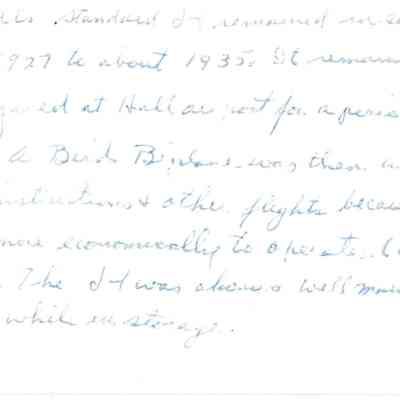 standard J-1 remained in se
1927 to about 1935. It remain
at Hall airport for a perio
A Bird Biplane was then u
instructions & other flights becau
more economically to operate.
The J-1 was always well main
while in storage.